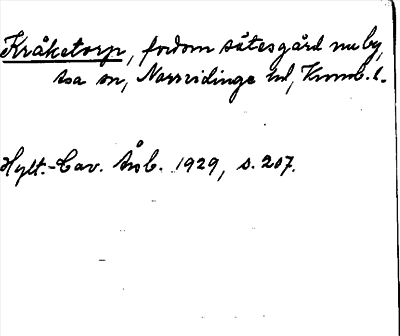 Kråketorp, fordom sätesgård nu by,
sa sn, Norrvidinge hd, Kronob. l.
Hylt.-Cav. Årsb. 1929, s. 207.